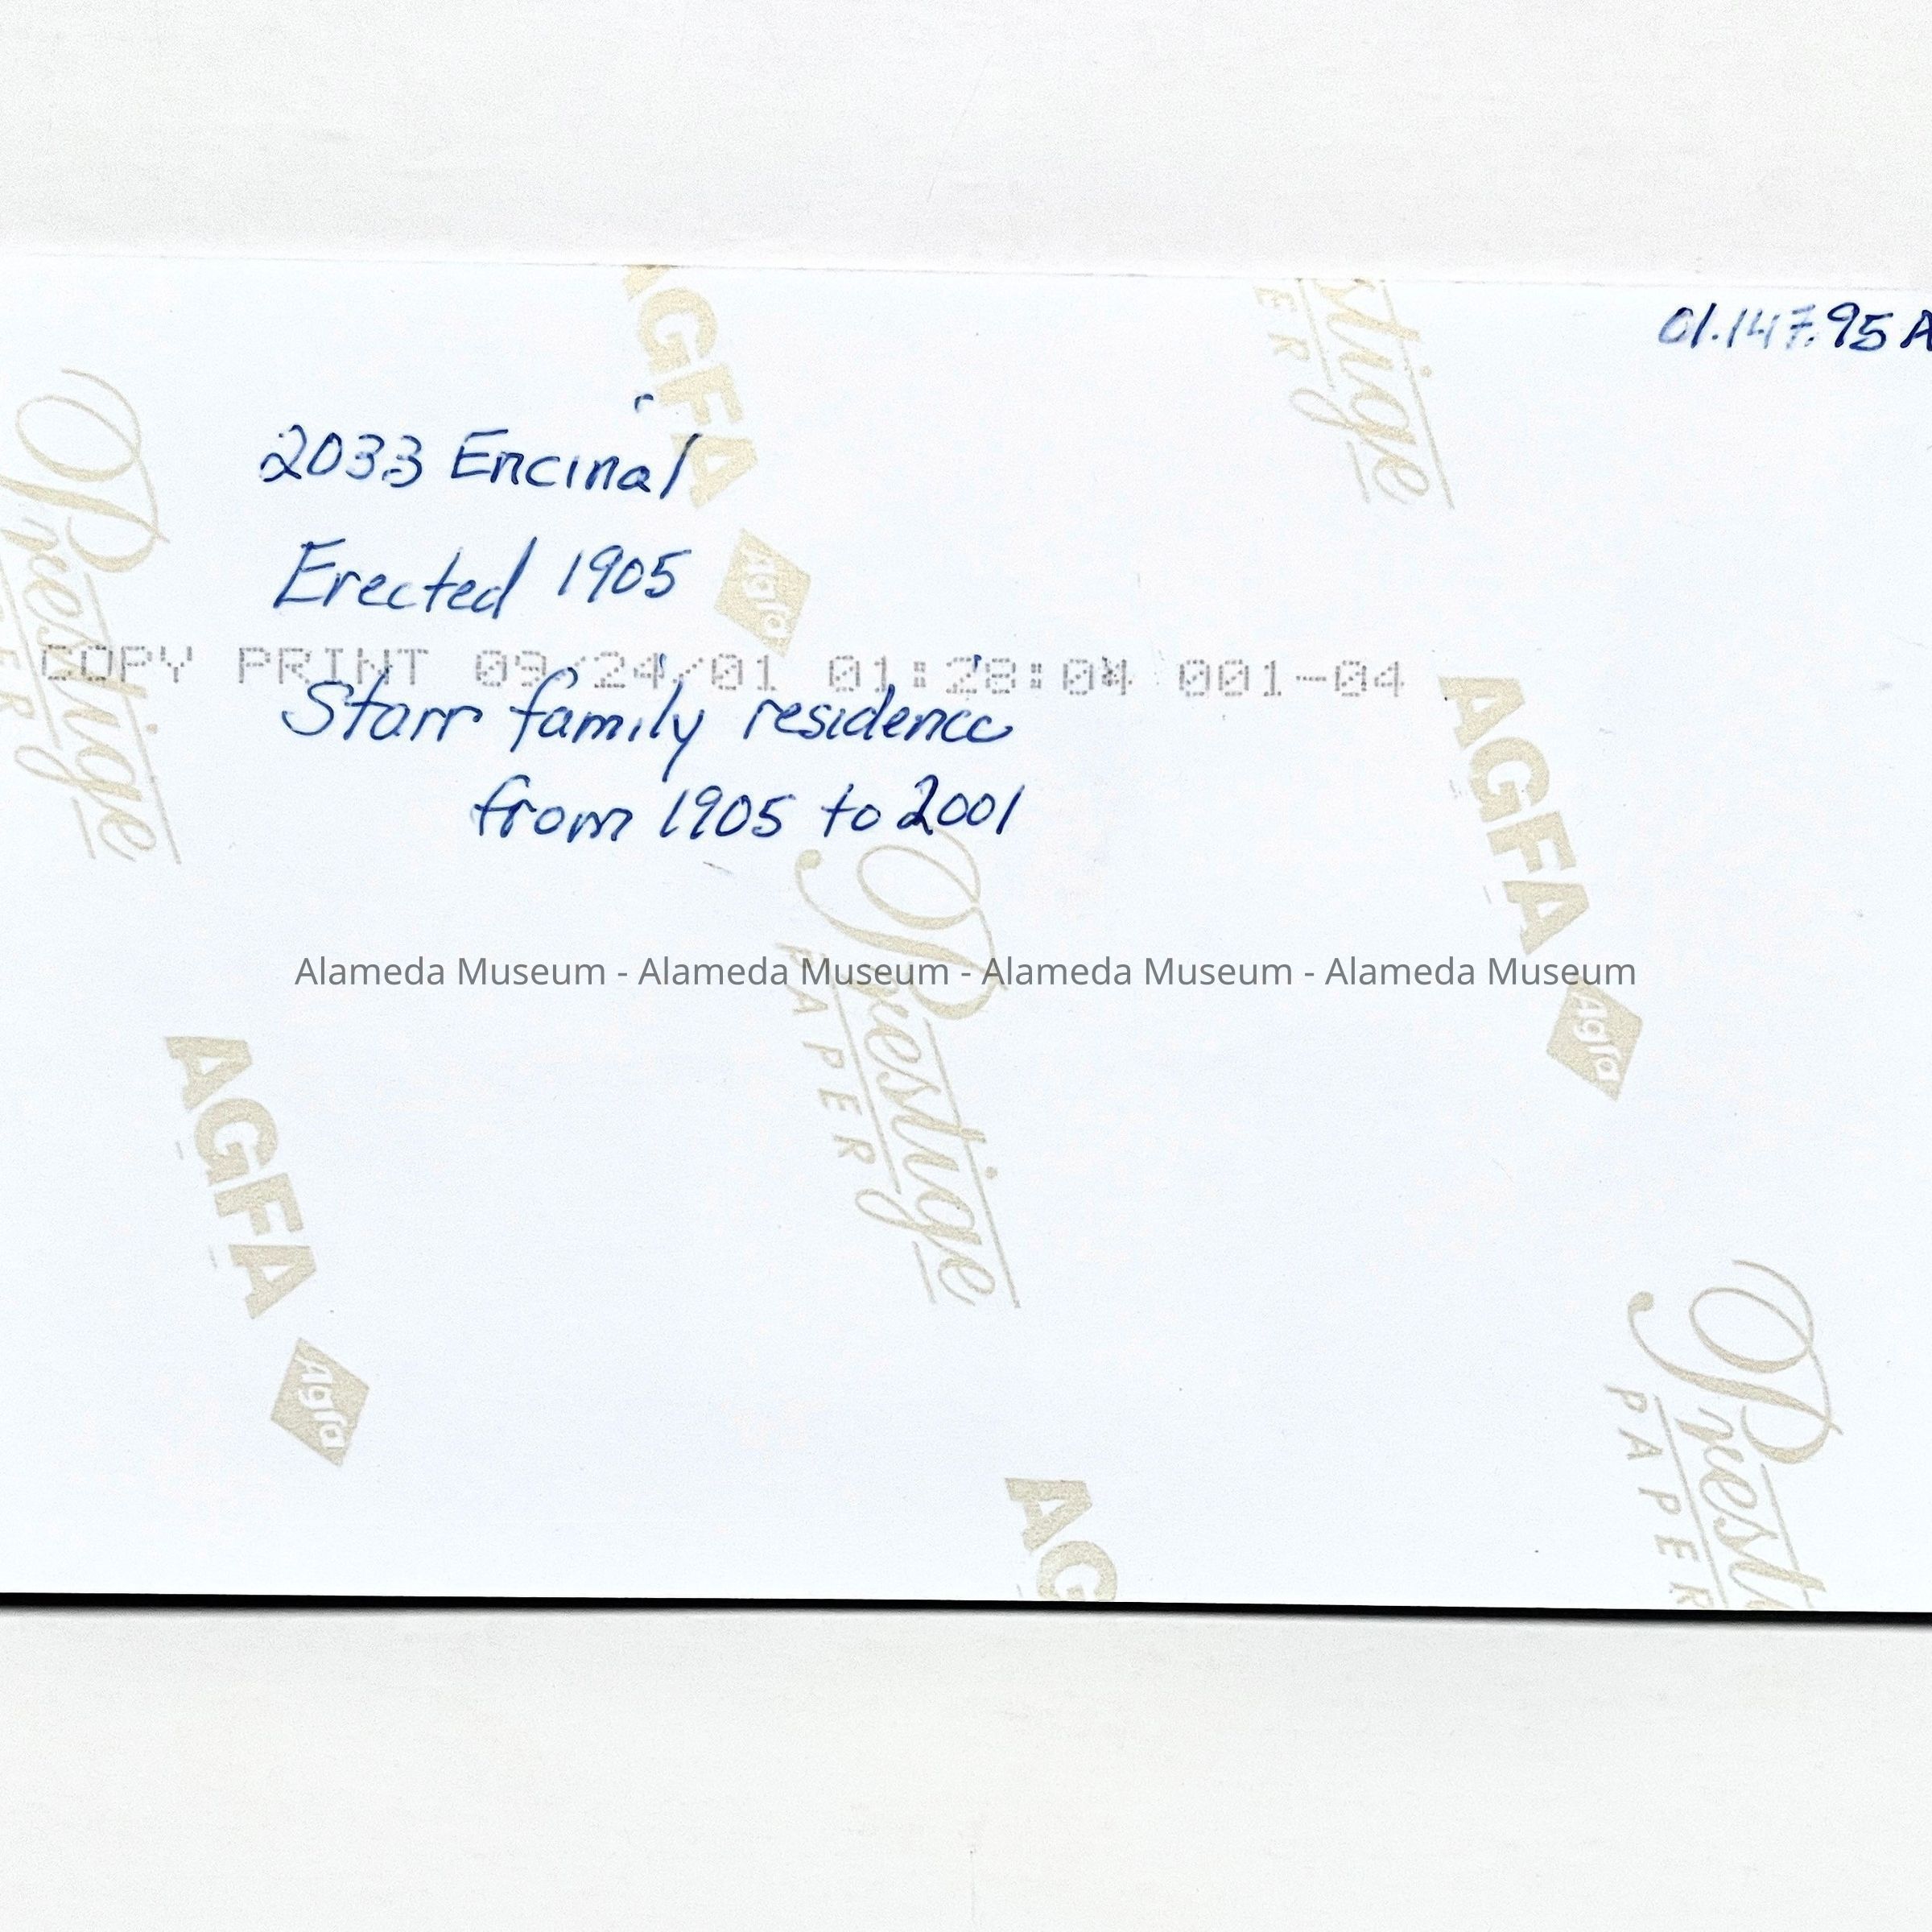 01.147.95 A
2033 Encinal
Erected 1905
COPY PRINT 09/24/01 01:28:04 001-04
Starr family residence
from 1905 to 2001
Alameda Museum - Alameda Museum - Alameda Museum - Alameda Museum
AGFA
Agfa
estige
ER
Prestige
ER
AGFA
Agfa
Prestige
PAPER
AGFA
Agfa
AG
Prest
PAPER